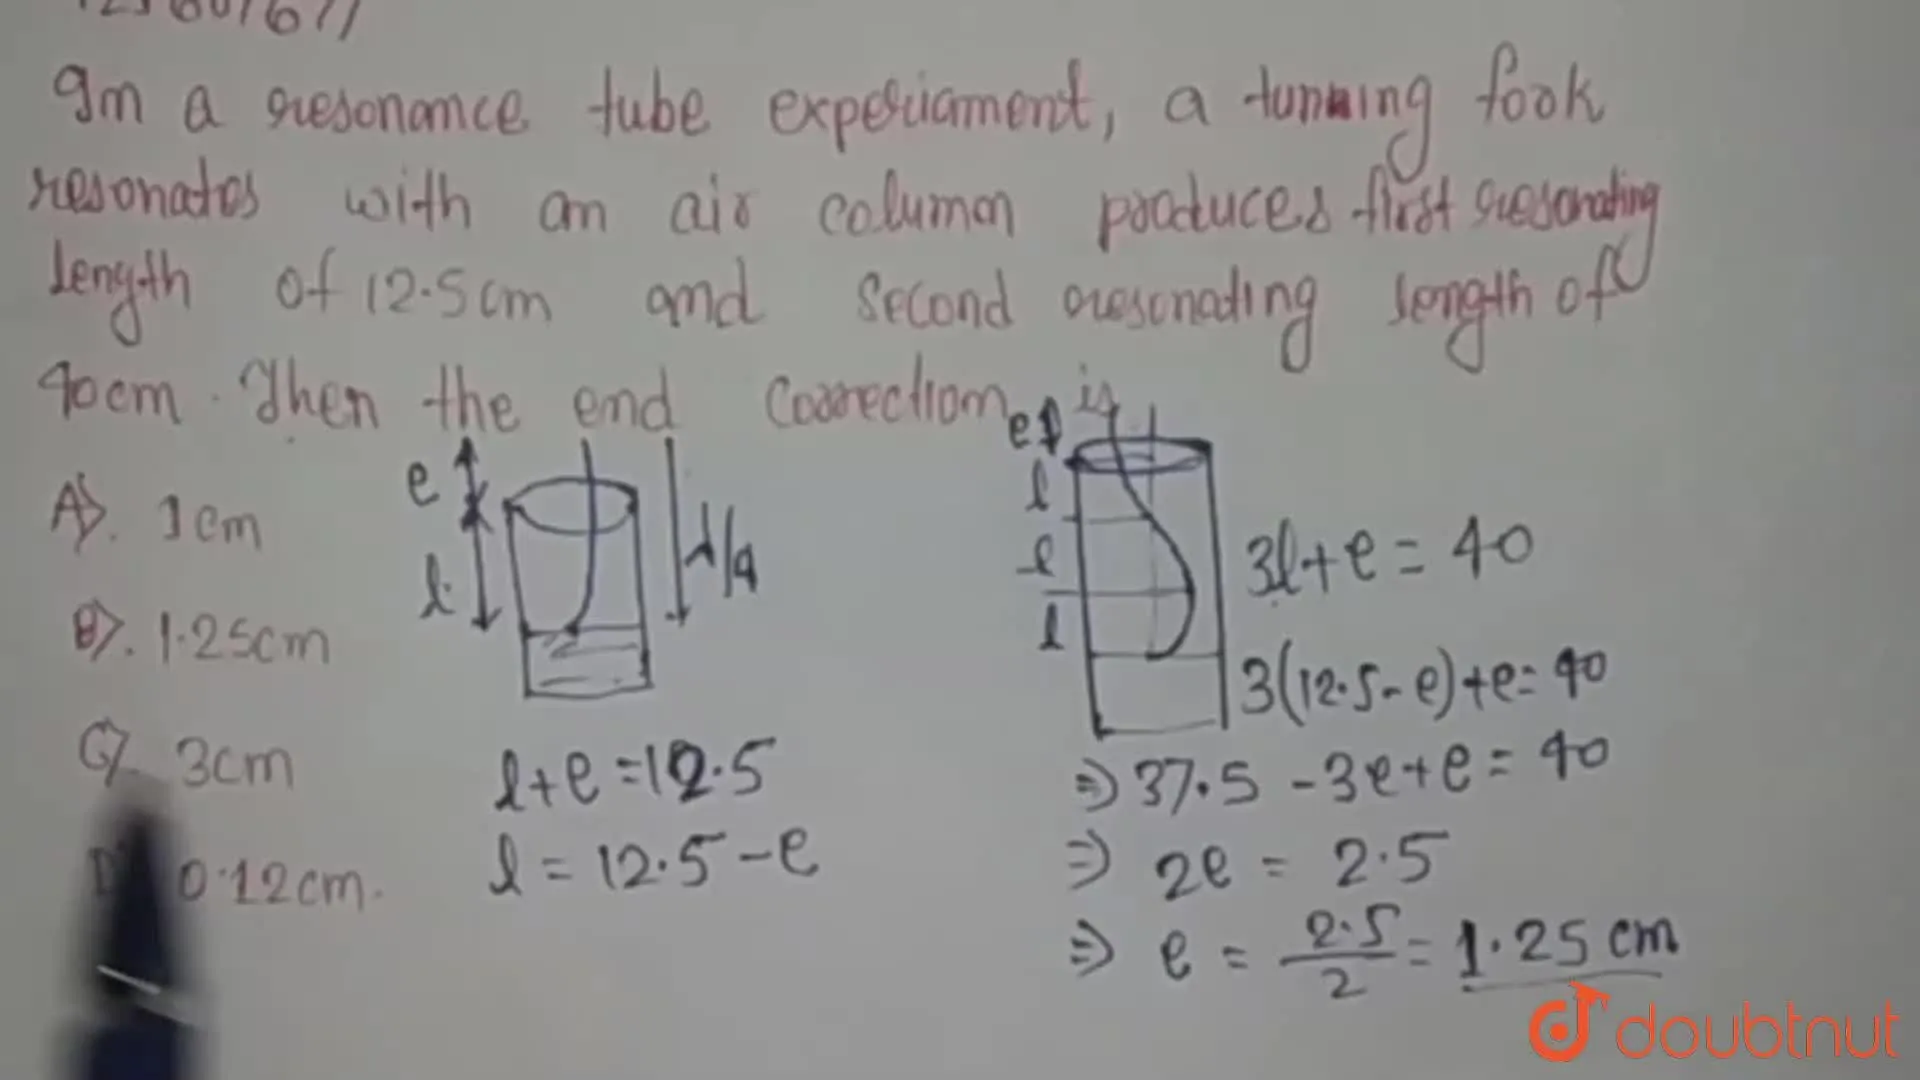 In a resonance tube experiament, a tunning fook
resonates with an air column produces first resonating
length of 12.5cm and second resonating length of
40cm. Then the end correction is
A). 1cm
B). 1.25cm
C). 3cm
D). 0.12cm.
e
l
λ/4
l+e=12.5
l = 12.5-e
e
l
l
l
3l+e = 40
3(12.5-e)+e=40
⇒ 37.5 -3e+e = 40
⇒ 2e = 2.5
⇒ e = 2.5/2 = 1.25 cm
doubtnut